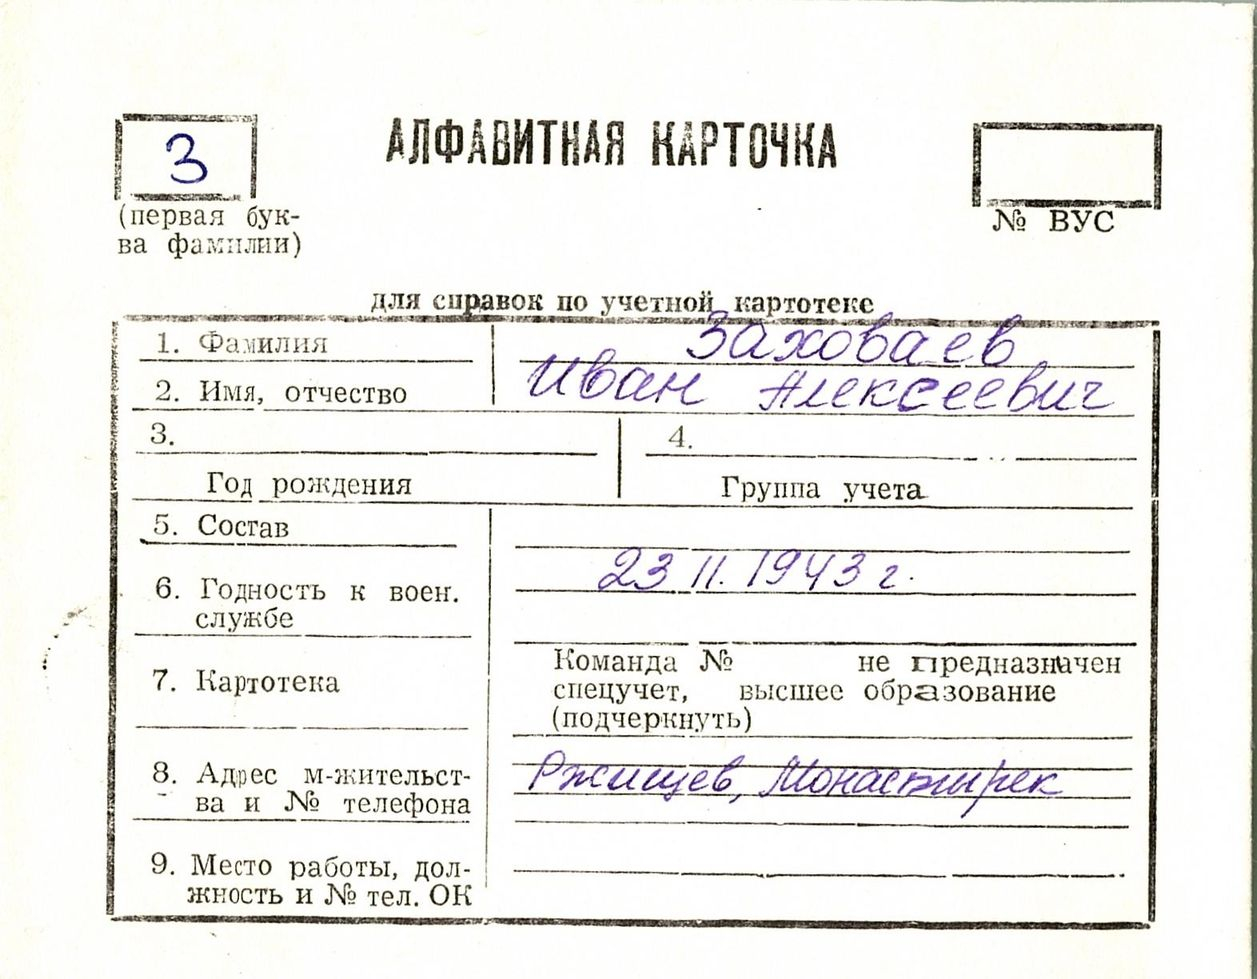 З
АЛФАВИТНАЯ КАРТОЧКА
(первая бук-
ва фамилии)
№ ВУС
для справок по учетной картотеке
1. Фамилия Заховаев
2. Имя, отчество Иван Алексеевич
3. 4.
Год рождения Группа учета
5. Состав
23 II. 1943 г.
6. Годность к воен.
службе
7. Картотека
Команда № не предназначен
спецучет, высшее образование
(подчеркнуть)
8. Адрес м-жительст-
ва и № телефона
Ржищев, Монастырек
9. Место работы, дол-
жность и № тел. ОК